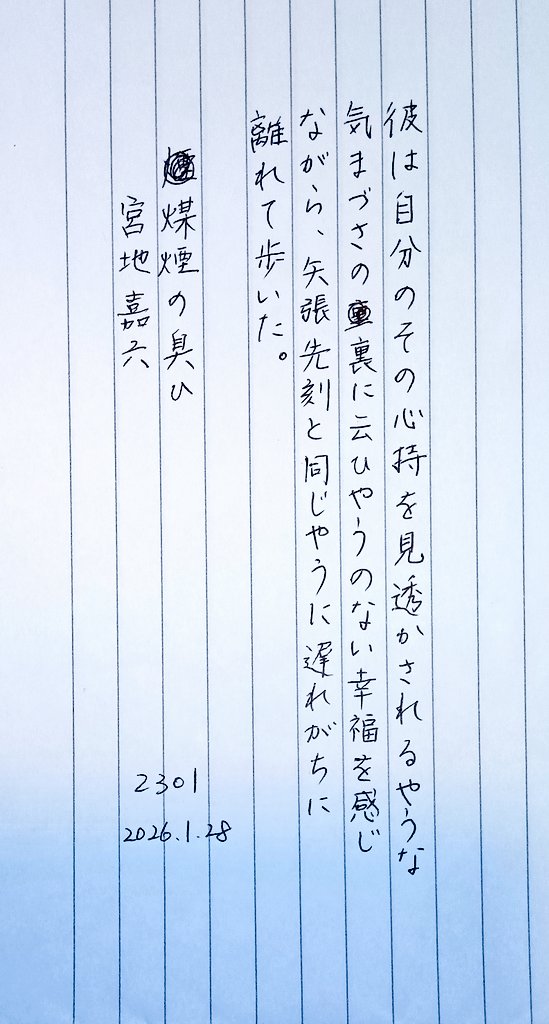 彼は自分のその心持を見透かされるやうな
気まづさの裏に云ひやうのない幸福を感じ
ながら、矢張先刻と同じやうに遅れがちに
離れて歩いた。
煤煙の臭ひ
宮地嘉六
2301
2026.1.28